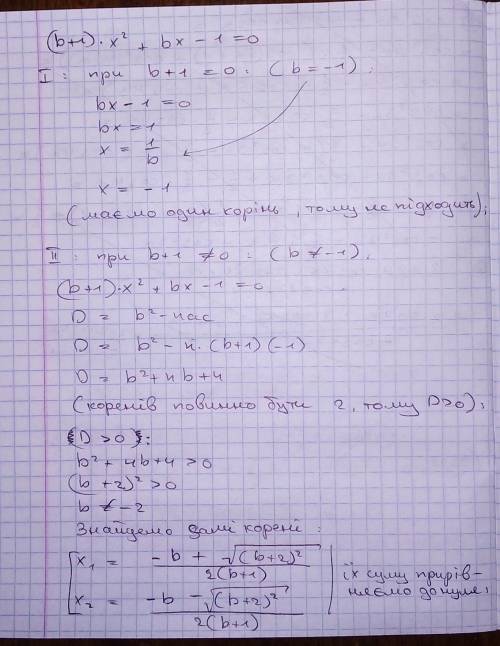 (b+1)·x² + bx - 1 = 0
I : при b+1 = 0 : (b = -1);
bx - 1 = 0
bx = 1
x = 1/b
x = -1
(маємо один корінь, тому не підходить);
II : при b+1 ≠ 0 : (b ≠ -1);
(b+1)·x² + bx - 1 = 0
D = b² - 4ac
D = b² - 4·(b+1)(-1)
D = b² + 4b + 4
(коренів повинно бути 2, тому D>0);
(D > 0):
b² + 4b + 4 > 0
(b+2)² > 0
b ≠ -2
Знайдемо самі корені :
x₁ = (-b + √(b+2)²) / 2(b+1)
x₂ = (-b - √(b+2)²) / 2(b+1)
їх суму прирів-
няємо до нуля;